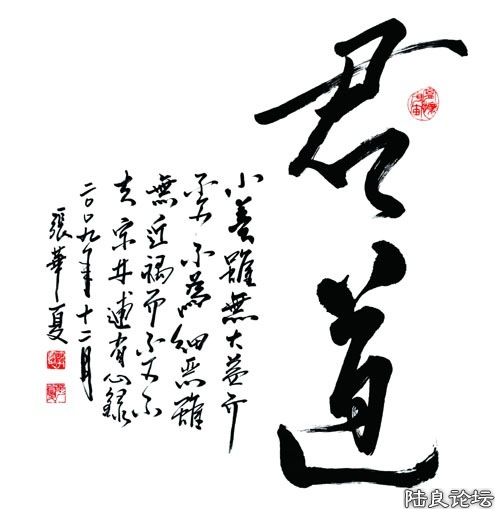 君道
小善雖無大益而
不可不為細惡雖
無近禍而不可不
去宋林逋省心錄
二〇〇九年十二月
張華夏
陆良论坛